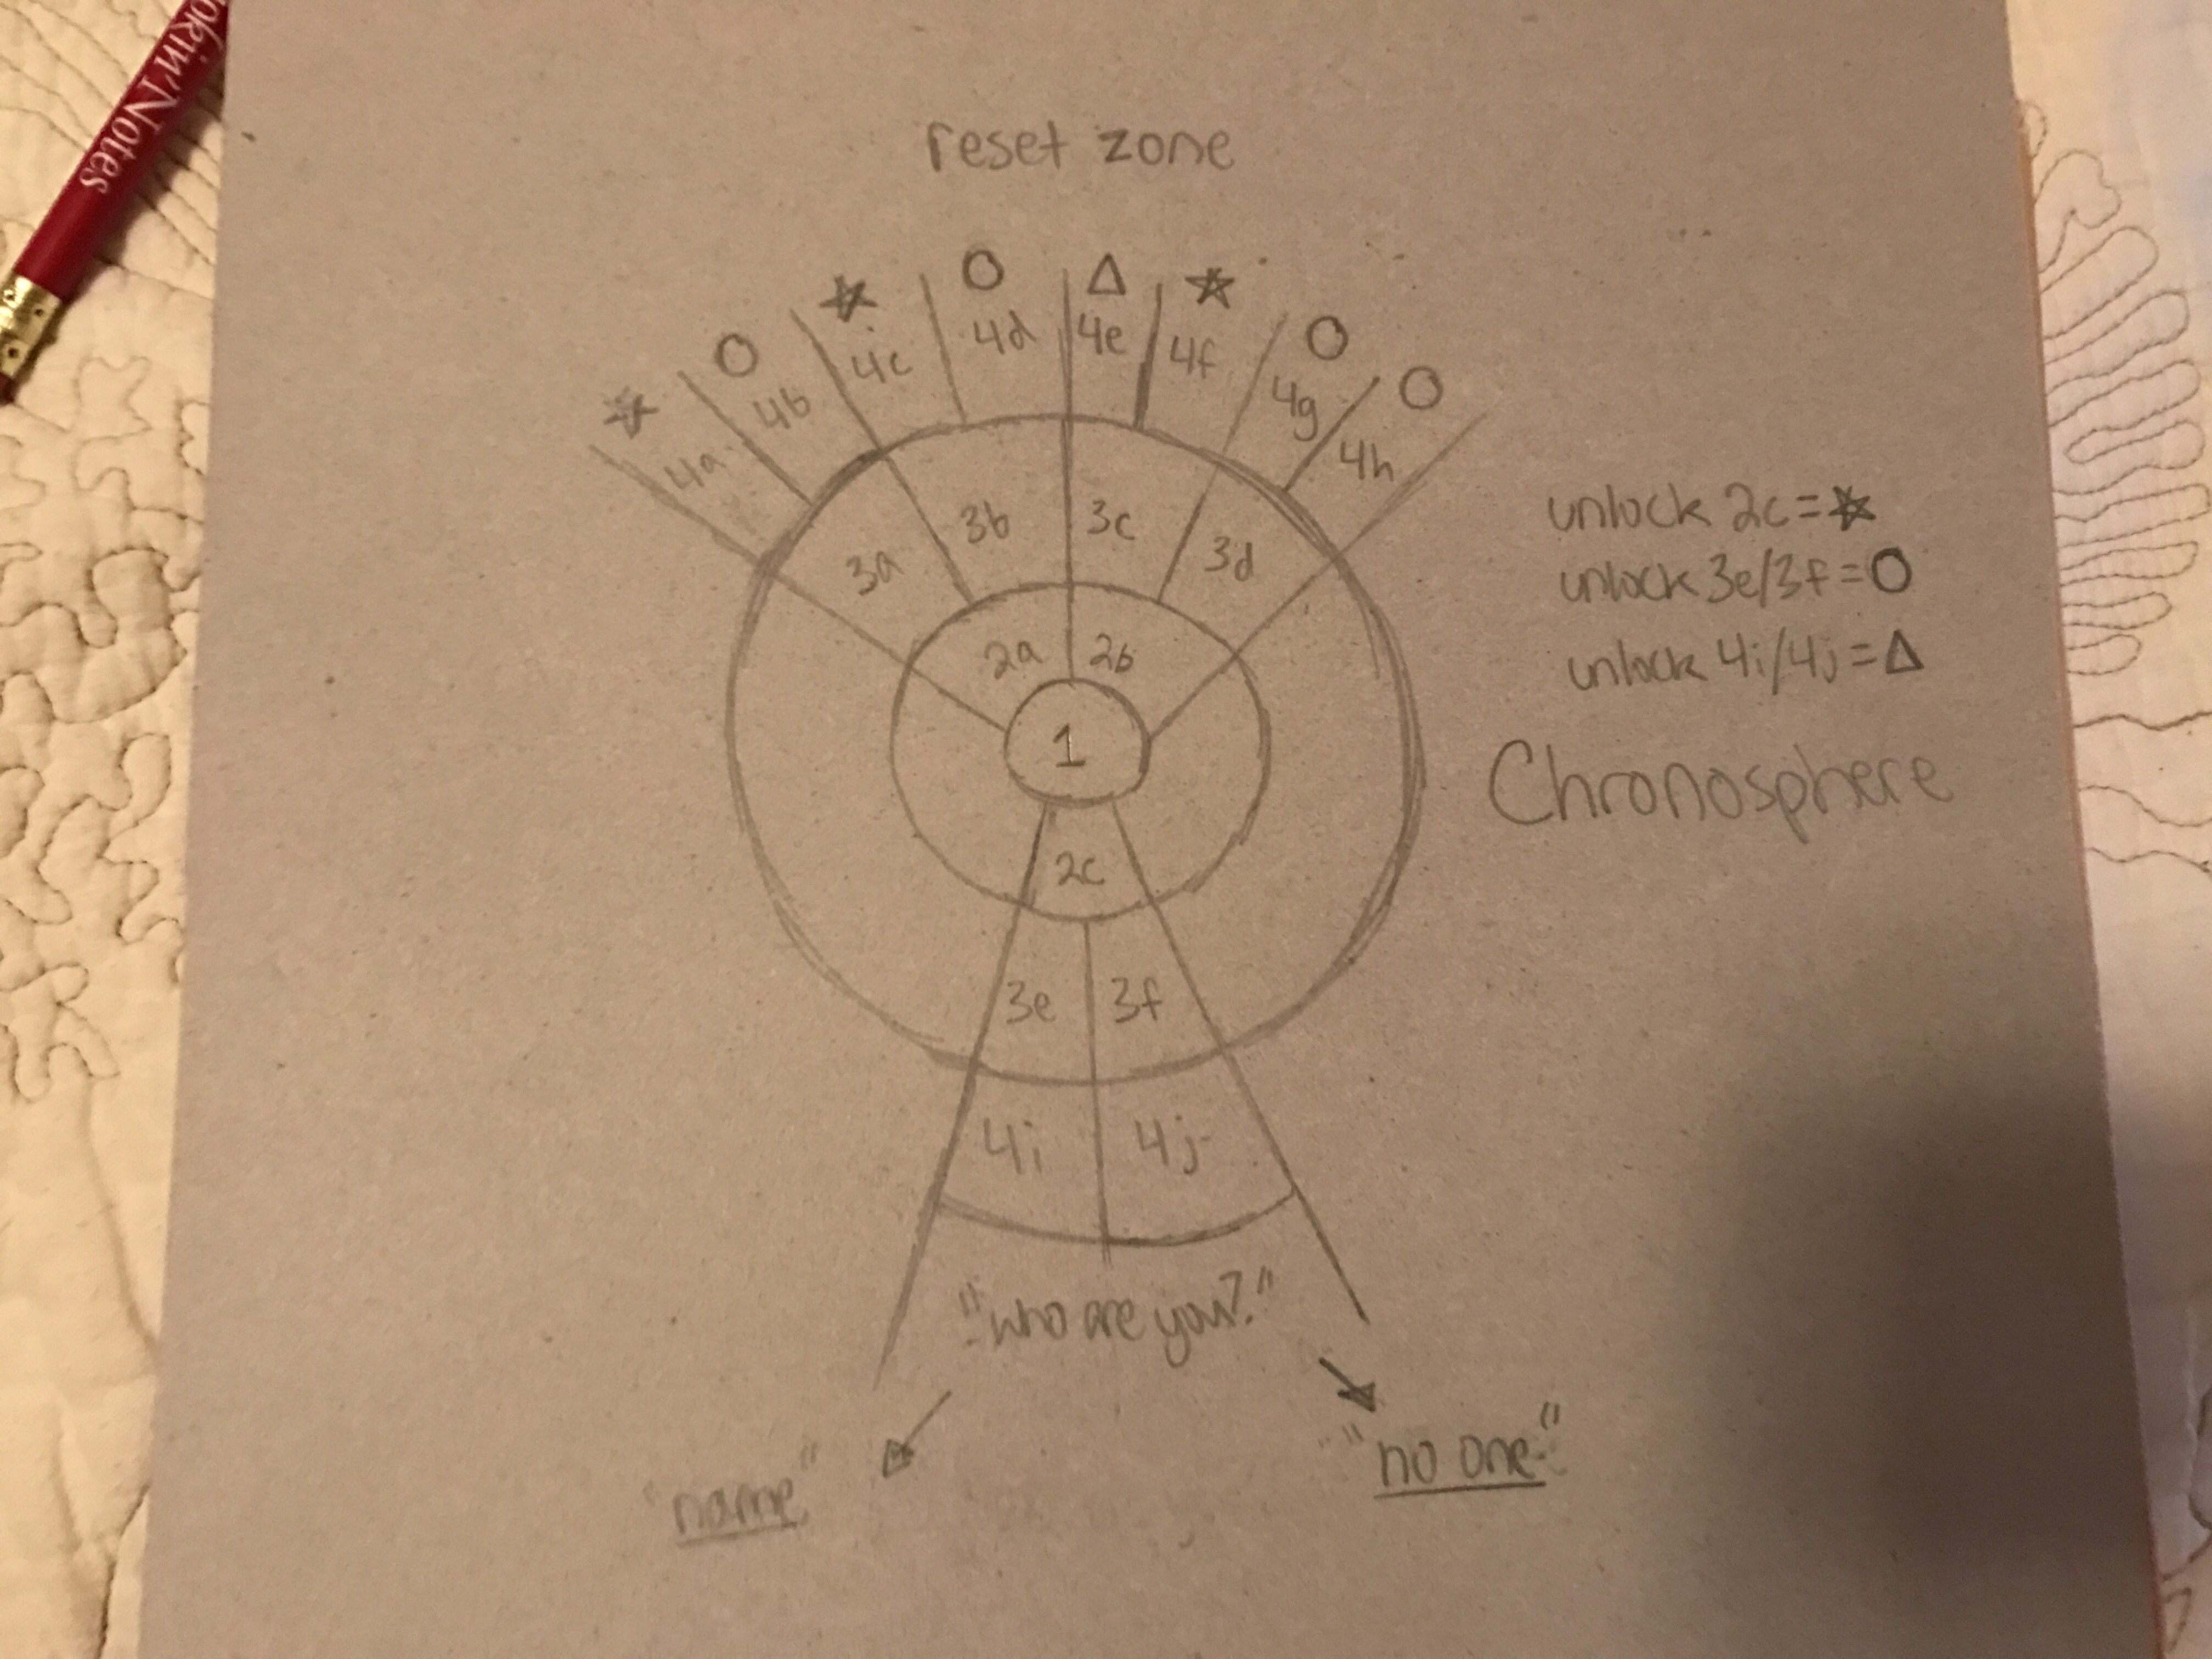 okin' Notes
reset zone
4a
4b
4c
4d
4e
4f
4g
4h
3a
3b
3c
3d
2a
2b
1
2c
3e
3f
4i
4j
unlock 2c=☆
unlock 3e/3f=O
unlock 4i/4j=△
Chronosphere
"who are you?"
"name"
"no one"